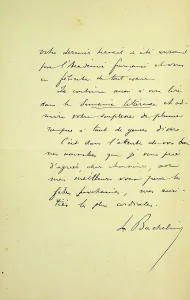 votre dernier travail a été couronné
par l'Académie française et vous
en félicite de tout cœur.
Je continue aussi à vous lire
dans la Semaine littéraire et ad-
mire votre souplesse de plume
rompue à tant de genres divers
C'est dans l'attente de vos bon-
nes nouvelles que je vous prie
d'agréer, cher, avec
mes meilleurs vœux pour les
fêtes prochaines, mes ami-
tiés les plus cordiales.